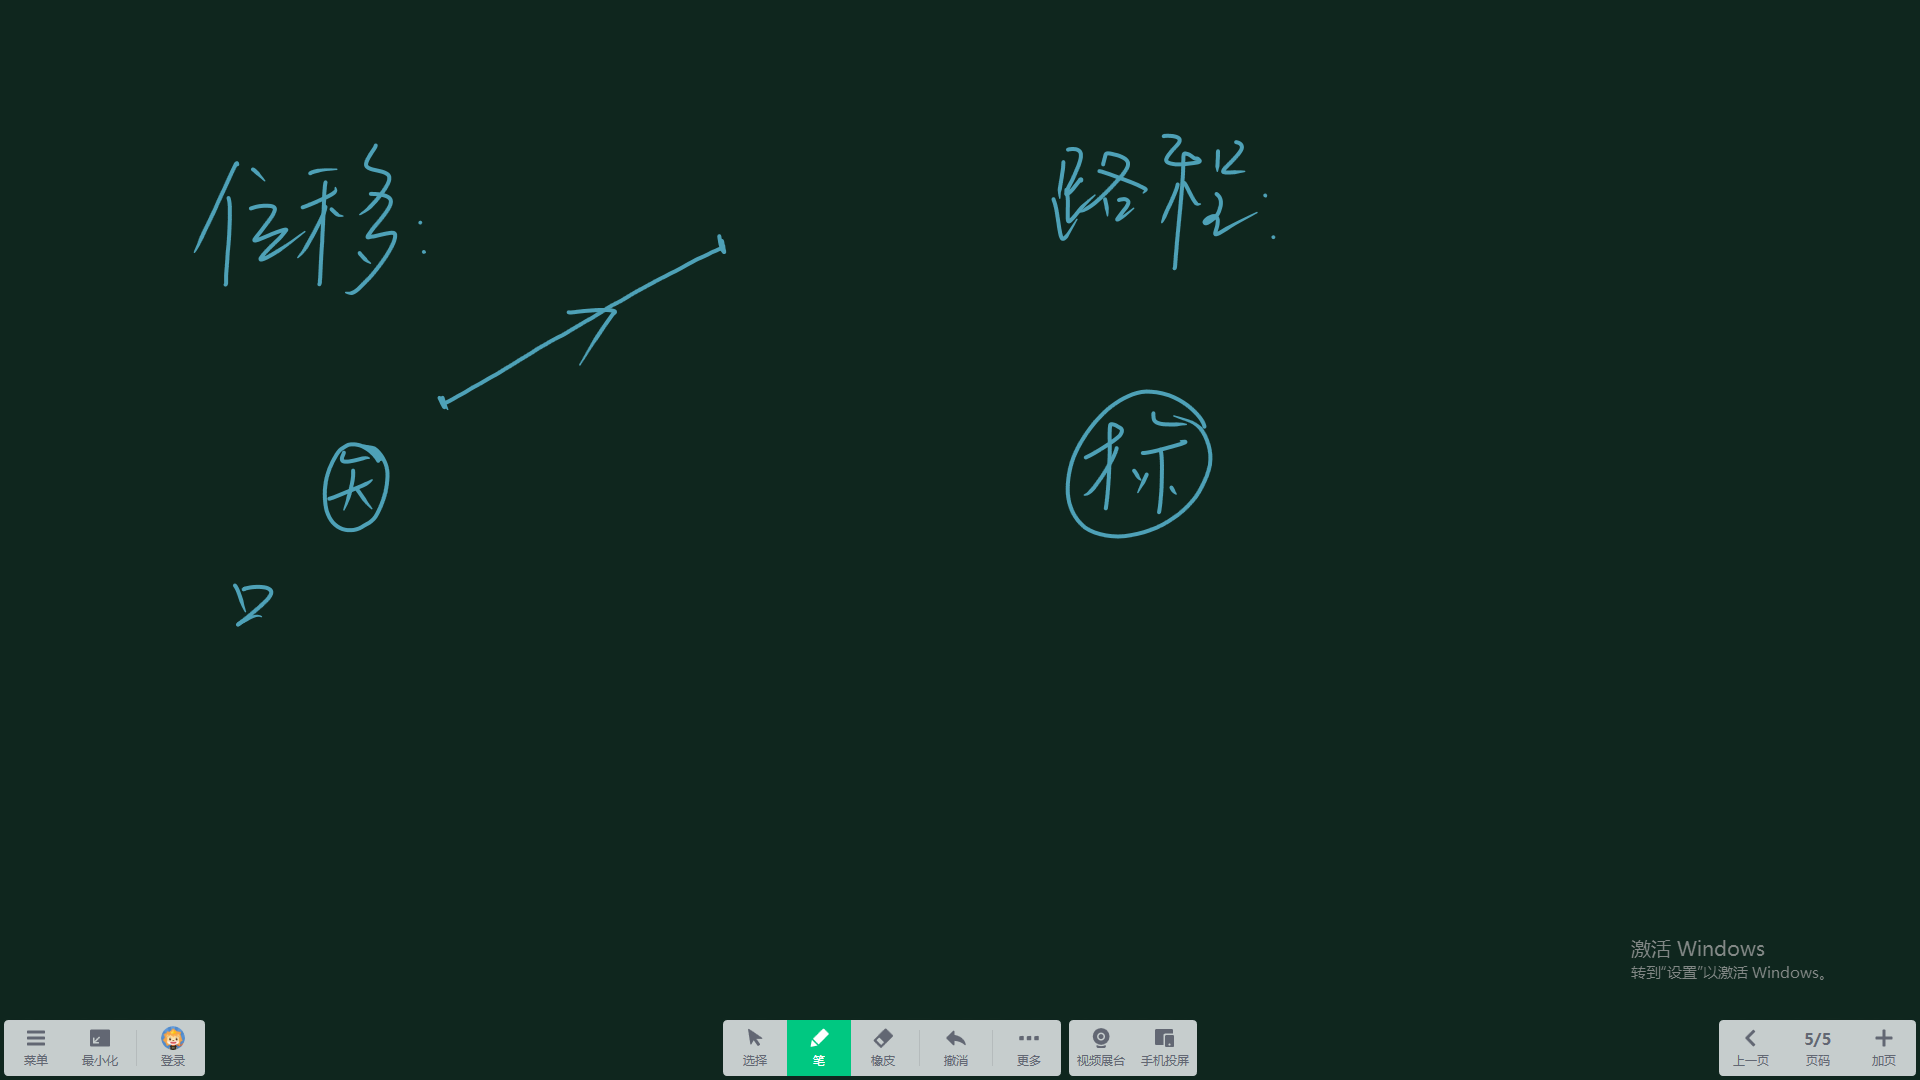 位移:
路程:
矢
标
激活 Windows
转到“设置”以激活 Windows。
菜单 最小化 登录 选择 笔 橡皮 撤消 更多 视频展台 手机投屏 上一页 5/5 页码 加页